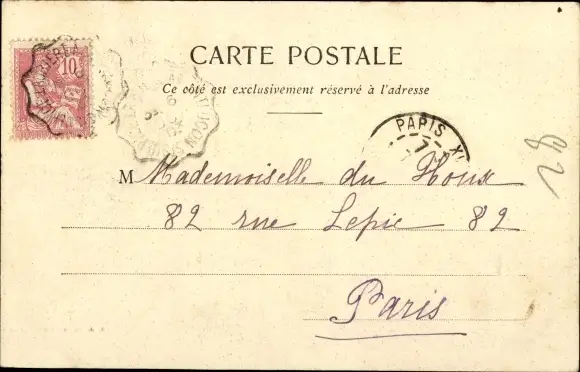 10
CARTE POSTALE
Ce côté est exclusivement réservé à l'adresse
PARIS
7
M Mademoiselle du Houx
82 rue Lepic 82
Paris
28